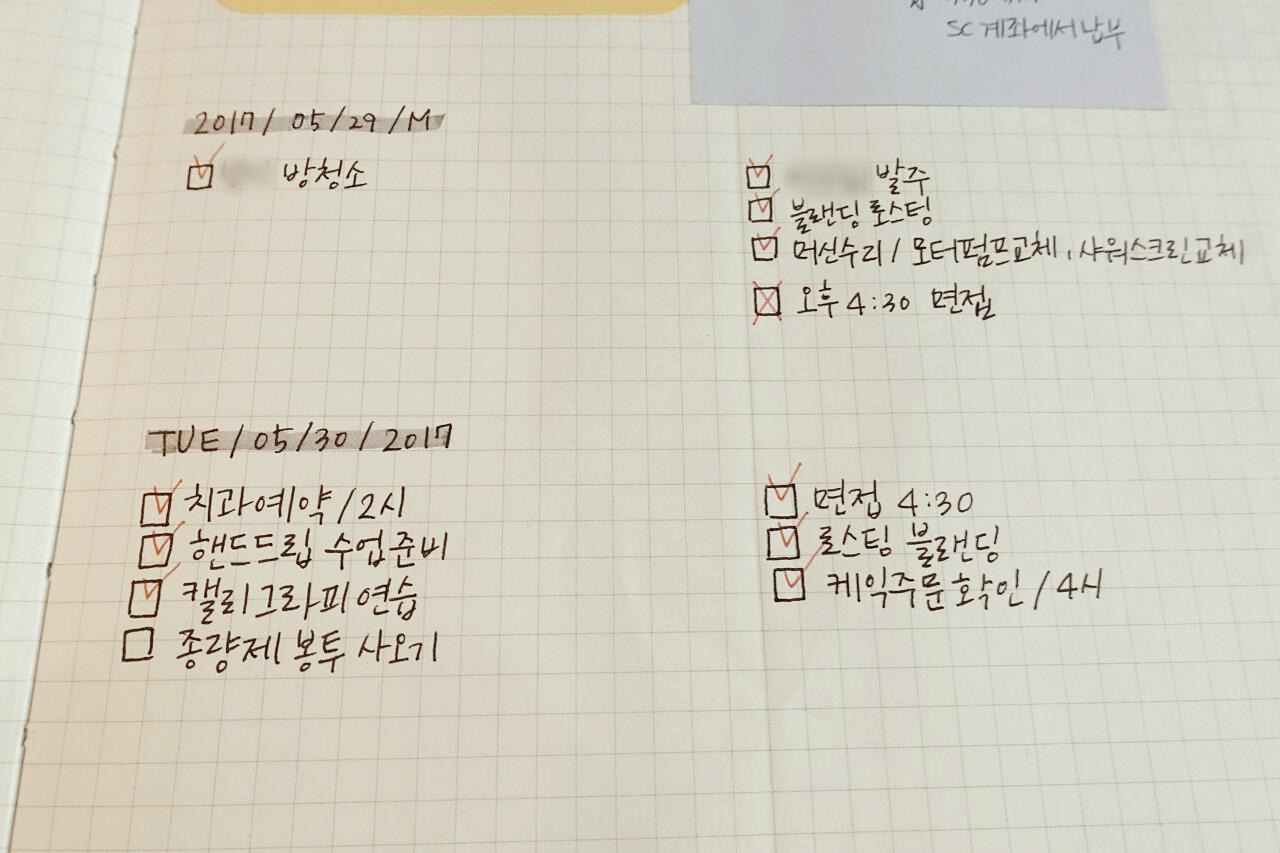 SC 계좌에서 납부
2017 / 05/29 / M
방청소
발주
블랜딩 로스팅
머신수리 / 모터펌프교체, 샤워스크린교체
오후 4:30 면접
TUE / 05/30 / 2017
치과예약 / 2시
핸드드립 수업준비
캘리그라피 연습
종량제 봉투 사오기
면접 4:30
로스팅 블랜딩
케익주문 확인 / 4시